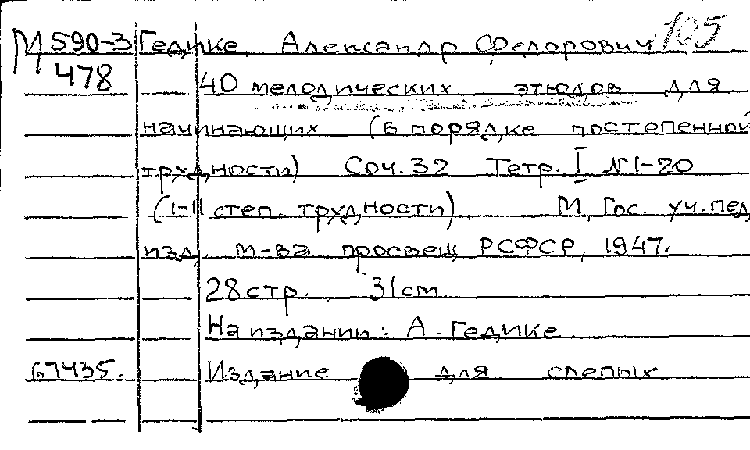 М590-3 Гедике, Александр Федорович 105
478 40 мелодических этюдов для
начинающих (в порядке постепенной
трудности) Соч. 32 Тетр. I №1-20
(I-II степ. трудности) М, Гос. уч.пед.
изд. М-ва просвещ. РСФСР, 1947.
28 стр. 31 см
На издании: А. Гедике
67435. Издание для слепых